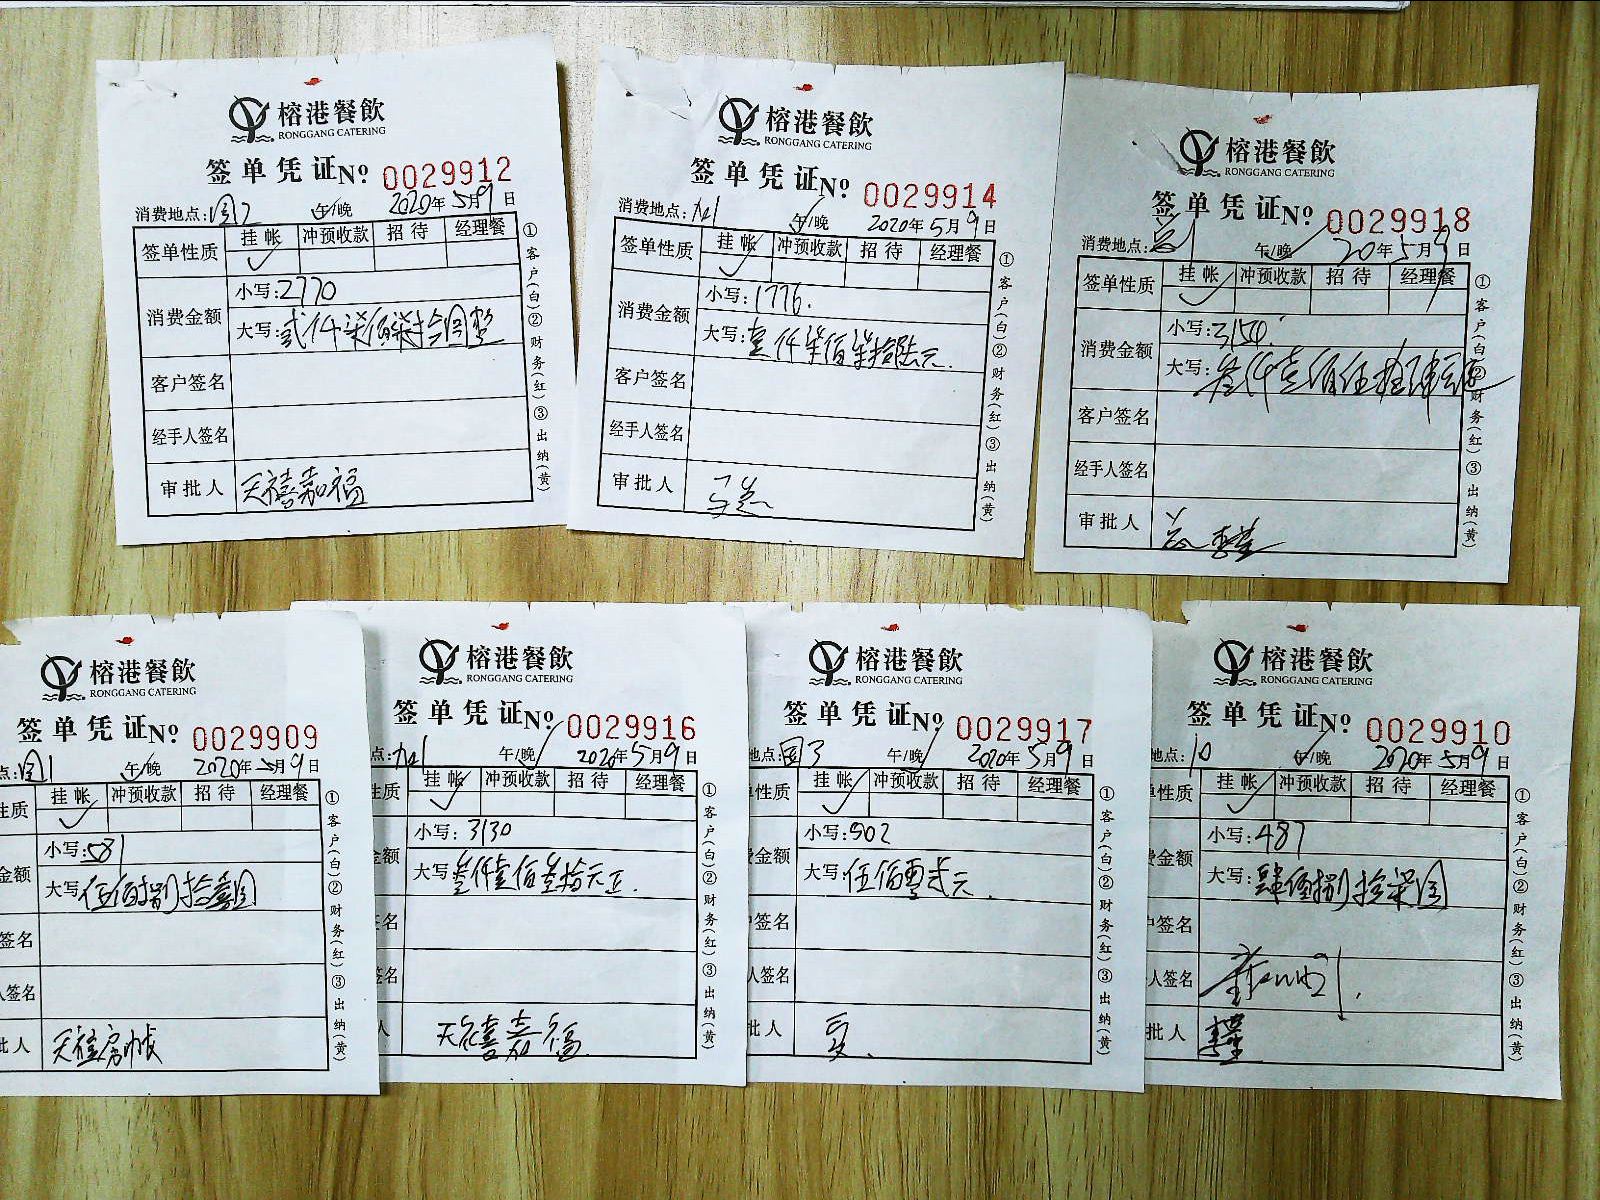 榕港餐飲
RONGGANG CATERING
签单凭证 Nº 0029912
消费地点:国2 午/晚 2020年5月9日
签单性质 挂帐 冲预收款 招待 经理餐
消费金额 小写:2770
大写:贰仟柒佰柒拾圆整
客户签名
经手人签名
审批人 天禧嘉福
①客户(白)②财务(红)③出纳(黄)
榕港餐飲
RONGGANG CATERING
签单凭证 Nº 0029914
消费地点: 午/晚 2020年5月9日
签单性质 挂帐 冲预收款 招待 经理餐
消费金额 小写:1776.
大写:壹仟柒佰柒拾陆元.
客户签名
经手人签名
审批人
①客户(白)②财务(红)③出纳(黄)
榕港餐飲
RONGGANG CATERING
签单凭证 Nº 0029918
消费地点: 午/晚 20年5月9日
签单性质 挂帐 冲预收款 招待 经理餐
消费金额 小写:3154.
大写:叁仟壹佰伍拾肆元
客户签名
经手人签名
审批人
①客户(白)②财务(红)③出纳(黄)
榕港餐飲
RONGGANG CATERING
签单凭证 Nº 0029909
点:国1 午/晚 2020年5月9日
性质 挂帐 冲预收款 招待 经理餐
金额 小写:581
大写:伍佰捌拾壹圆
签名
人签名
批人 天禧房帐
①客户(白)②财务(红)③出纳(黄)
榕港餐飲
RONGGANG CATERING
签单凭证 Nº 0029916
点: 午/晚 2020年5月9日
性质 挂帐 冲预收款 招待 经理餐
金额 小写:3130
大写:叁仟壹佰叁拾元正.
签名
签名
人 天禧嘉福
①客户(白)②财务(红)③出纳(黄)
榕港餐飲
RONGGANG CATERING
签单凭证 Nº 0029917
地点:国3 午/晚 2020年5月9日
单性质 挂帐 冲预收款 招待 经理餐
费金额 小写:502
大写:伍佰零贰元.
户签名
人签名
批人
①客户(白)②财务(红)③出纳(黄)
榕港餐飲
RONGGANG CATERING
签单凭证 Nº 0029910
地点:10 午/晚 2020年5月9日
单性质 挂帐 冲预收款 招待 经理餐
费金额 小写:487
大写:肆佰捌拾柒圆
户签名
人签名
批人
①客户(白)②财务(红)③出纳(黄)